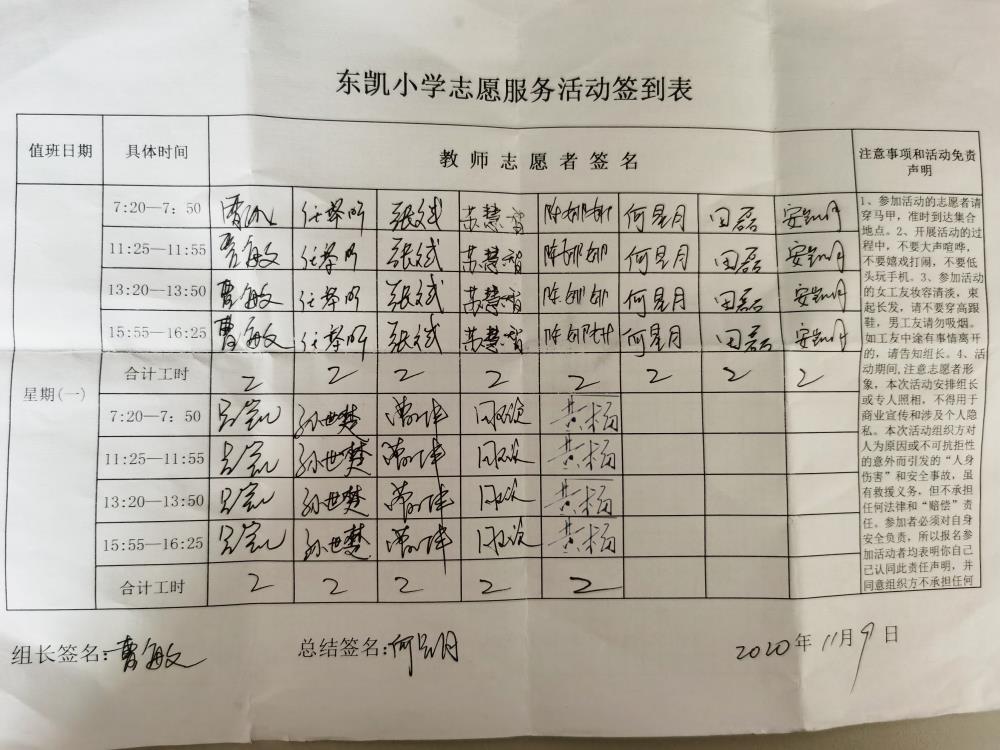 东凯小学志愿服务活动签到表
值班日期 具体时间 教师志愿者签名 注意事项和活动免责声明
星期(一)
7:20—7:50 张斌 苏慧智 陈娜娜 何星月 田磊
11:25—11:55 曹敏 张斌 苏慧智 陈娜娜 何星月 田磊
13:20—13:50 曹敏 张斌 苏慧智 陈娜娜 何星月 田磊
15:55—16:25 曹敏 张斌 苏慧智 陈娜娜 何星月 田磊
合计工时 2 2 2 2 2 2 2 2
7:20—7:50 孙世楚 黄杨
11:25—11:55 孙世楚 黄杨
13:20—13:50 孙世楚 黄杨
15:55—16:25 孙世楚 黄杨
合计工时 2 2 2 2 2
1、参加活动的志愿者请
穿马甲,准时到达集合
地点。2、开展活动的过
程中,不要大声喧哗,
不要嬉戏打闹,不要低
头玩手机。3、参加活动
的女工友妆容清淡,束
起长发,请不要穿高跟
鞋,男工友请勿吸烟。
如工友中途有事情离开
的,请告知组长。4、活
动期间,注意志愿者形
象,本次活动安排组长
或专人照相,不得用于
商业宣传和涉及个人隐
私。本次活动组织方对
人为原因或不可抗拒性
的意外而引发的“人身
伤害”和安全事故,虽
有救援义务,但不承担
任何法律和“赔偿”责
任。参加者必须对自身
安全负责,所以报名参
加活动者均表明你自己
已认同此责任声明,并
同意组织方不承担任何
组长签名:曹敏 总结签名:何星月 2020年11月9日